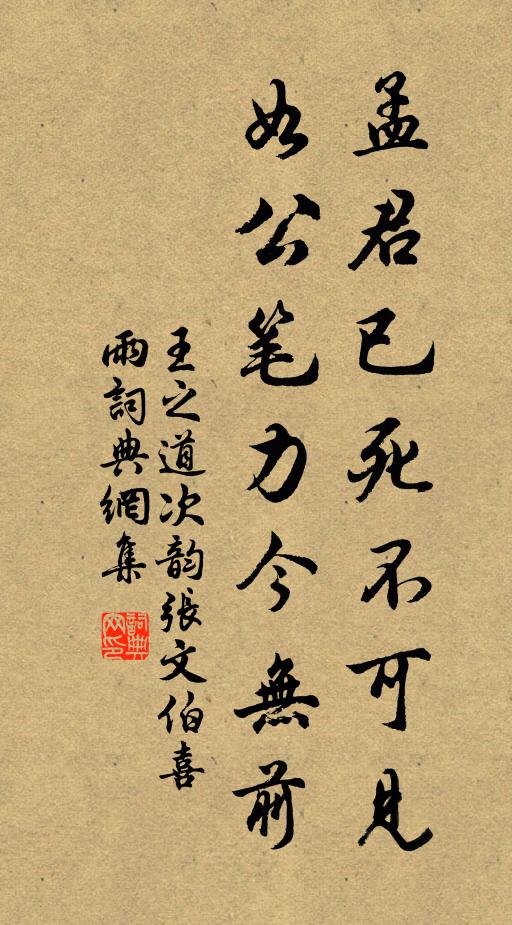 孟君已死不可見
如公笔力今無前
王之道次韵張文伯喜
雨詞典網集
詞典网印